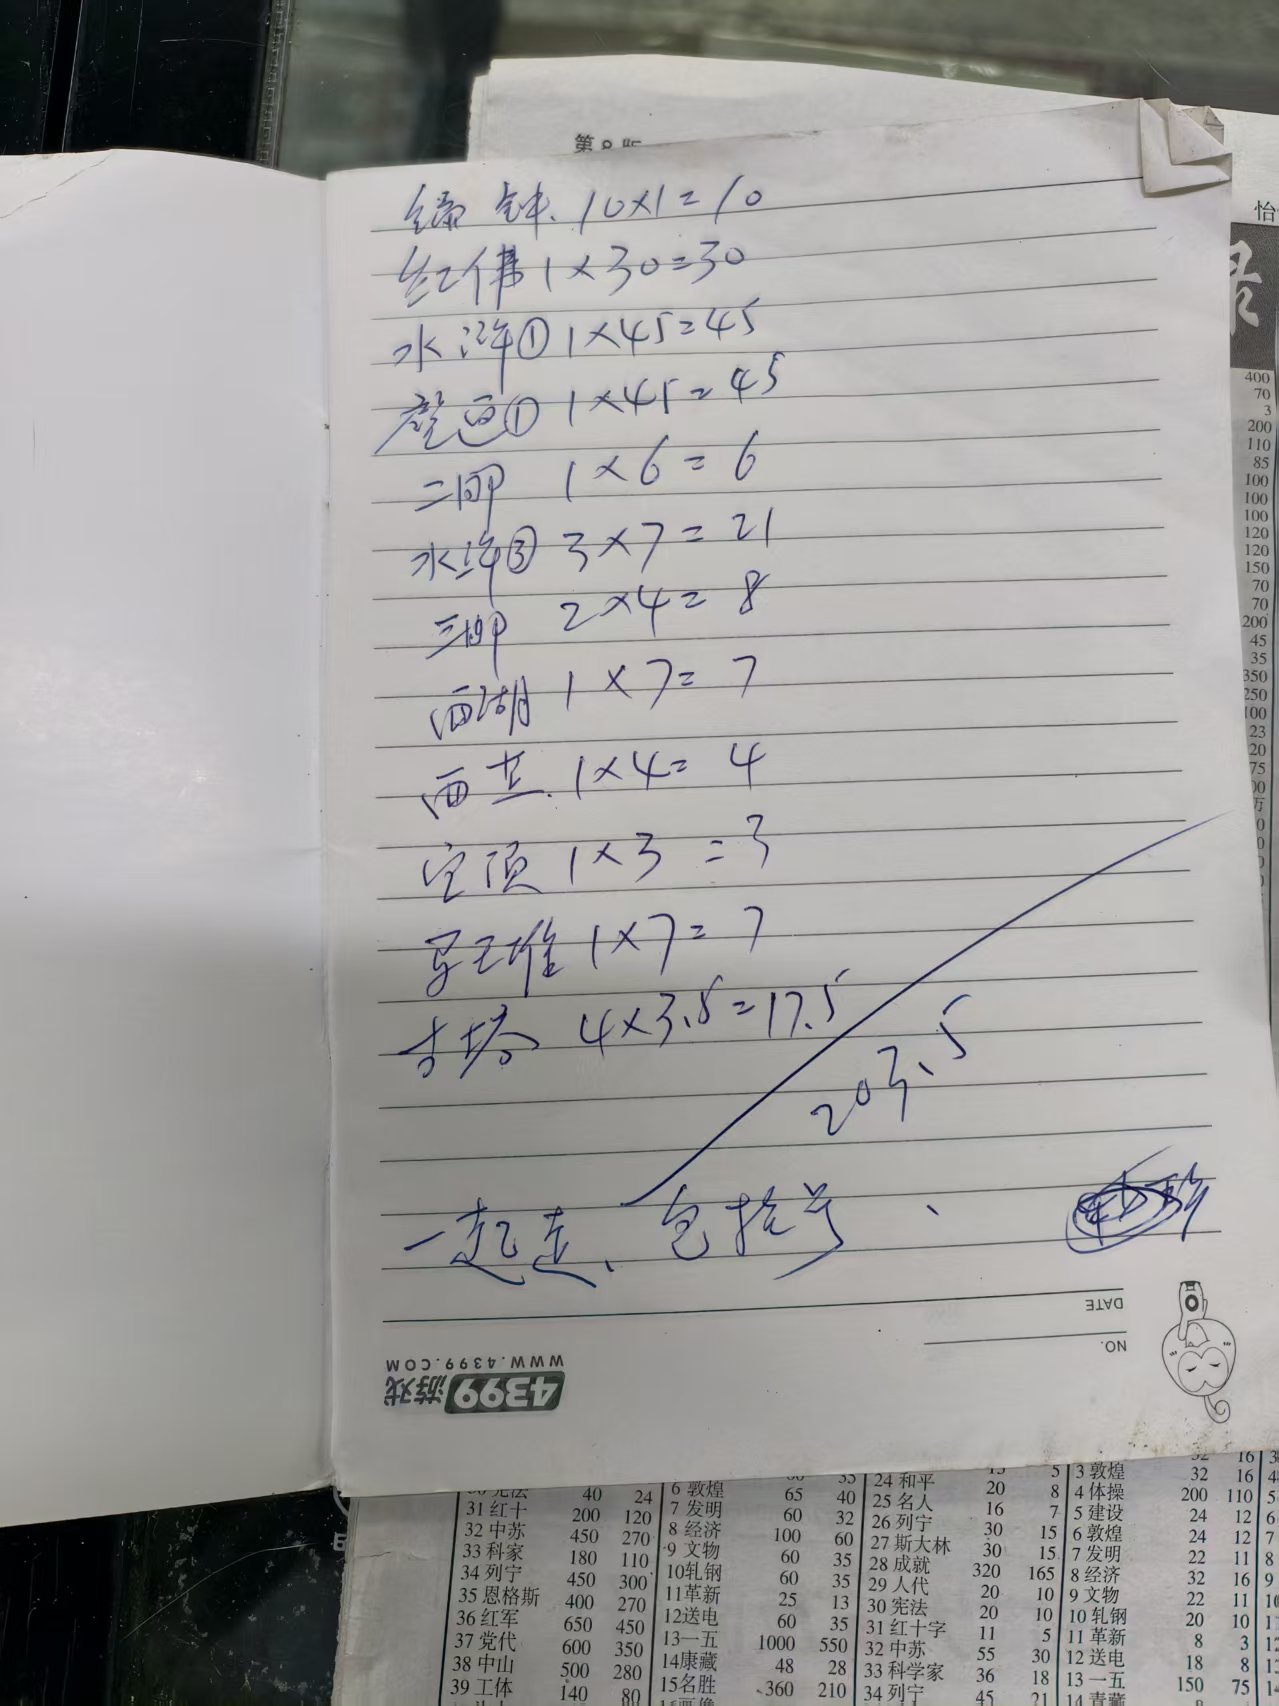 第8版
编钟. 10×1=10
红佛 1×30=30
水浒① 1×45=45
1×45=45
二 1×6=6
水浒③ 3×7=21
三 2×4=8
西湖 1×7=7
西 1×4=4
1×3=3
马王堆 1×7=7
古塔 4×3.5=17.5
203.5
一起走、包括号、
DATE
NO.
WWW.4399.COM
4399游戏
怡
录
400
70
3
200
110
85
100
100
100
120
120
150
70
70
200
45
35
350
250
100
23
20
75
31 红十 200 120
32 中苏 450 270
33 科家 180 110
34 列宁 450 300
35 恩格斯 400 270
36 红军 650 450
37 党代 600 350
38 中山 500 280
39 工体 140 80
6 敦煌 65 40
7 发明 60 32
8 经济 100 60
9 文物 60 35
10 轧钢 60 35
11 革新 25 13
12 送电 60 35
13 一五 1000 550
14 康藏 48 28
15 名胜 360 210
24 和平 20 8
25 名人 16 7
26 列宁 30 15
27 斯大林 30 15
28 成就 320 165
29 人代 20 10
30 宪法 20 10
31 红十字 11 5
32 中苏 55 30
33 科学家 36 18
34 列宁 45 21
3 敦煌 32 16
4 体操 200 110
5 建设 24 12
6 敦煌 24 12
7 发明 22 11
8 经济 32 16
9 文物 22 11
10 轧钢 20 10
11 革新 8 3
12 送电 18 8
13 一五 150 75